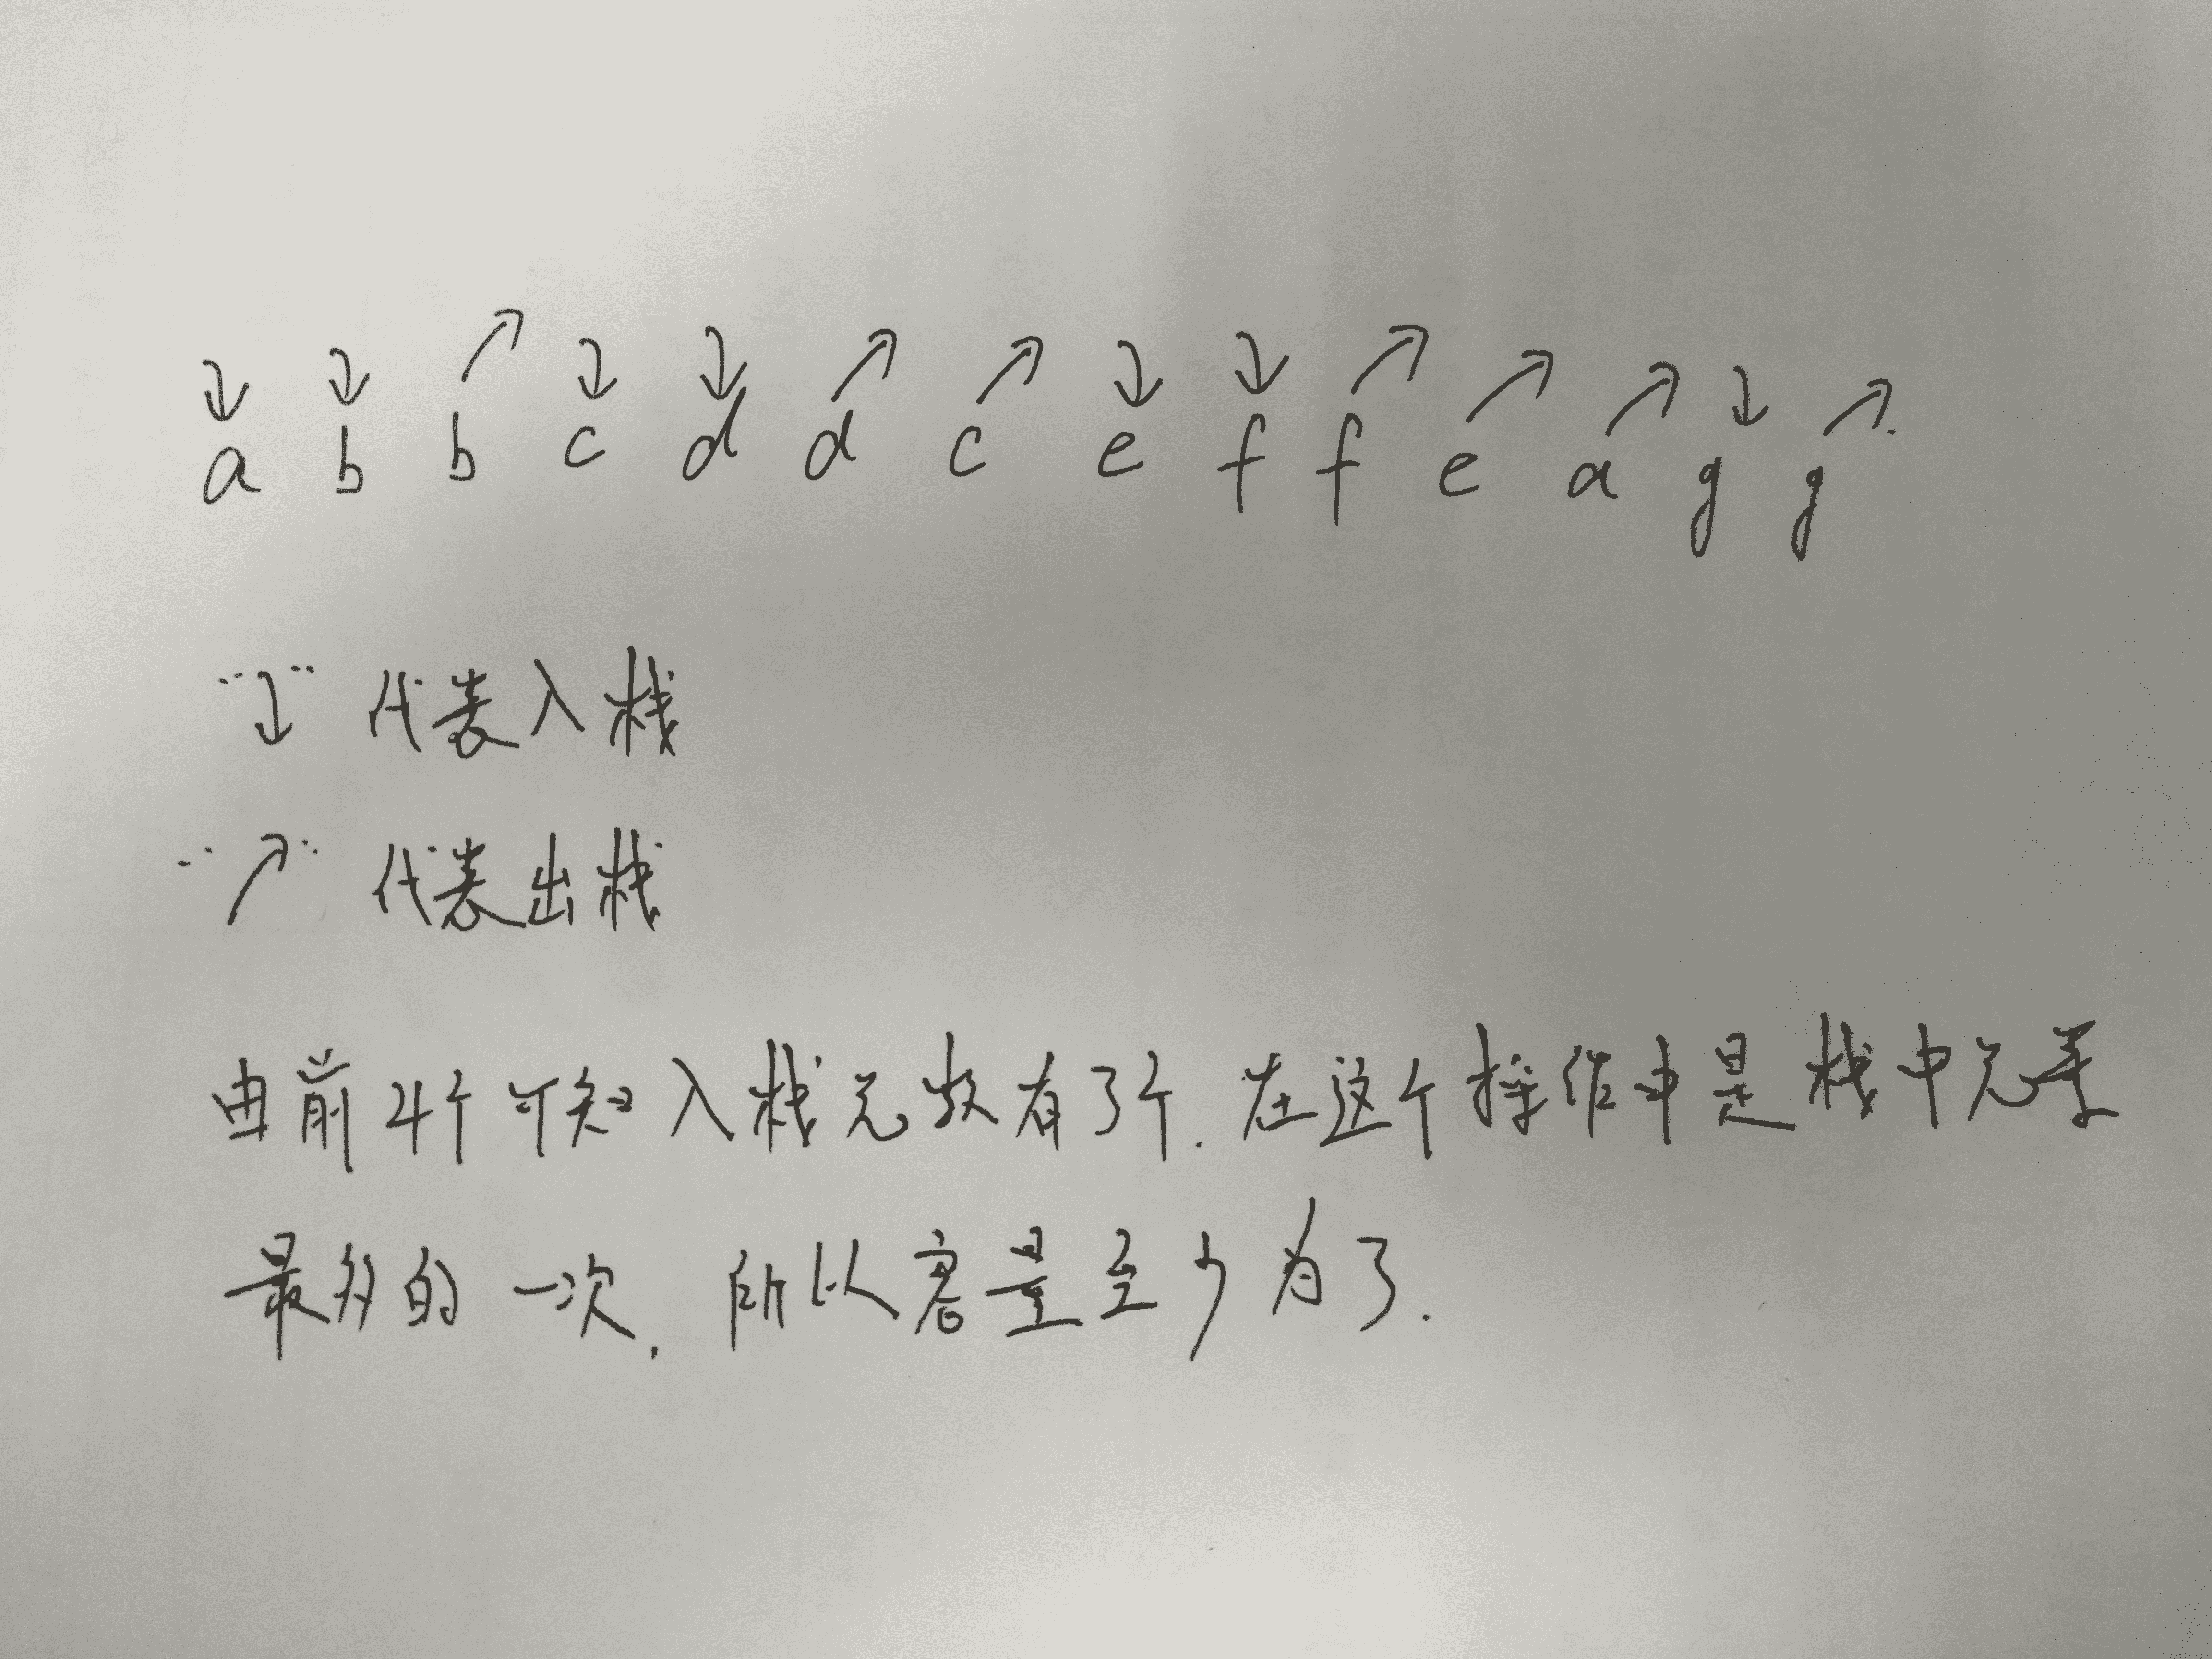 ↓ ↓ ↗ ↓ ↓ ↗ ↗ ↓ ↓ ↗ ↗ ↗ ↓ ↗.
a b b c d d c e f f e a g g
"↓" 代表入栈
"↗" 代表出栈
由前4个可知入栈元数有3个.在这个操作中是栈中元素
最多的一次,所以容量至少为3.